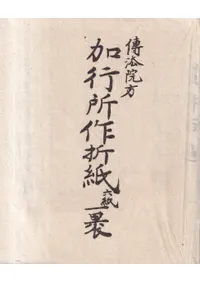 傳法院方
加行所作折紙六紙一裹